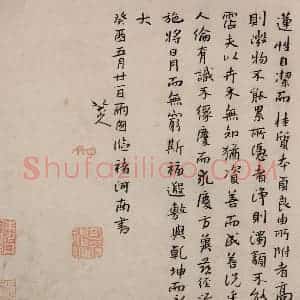 蓮性自潔而桂質本貞良由所附者高
則微物不能累所憑者淨則濁類不能
霑夫以卉木無知猶資善而成善況乎
人倫有識不緣慶而求慶方冀茲經流
施將日月而無窮斯福遐敷與乾坤而
大
癸酉五月廿一日雨窗臨褚河南書
八大山人
Shufaziliao.com